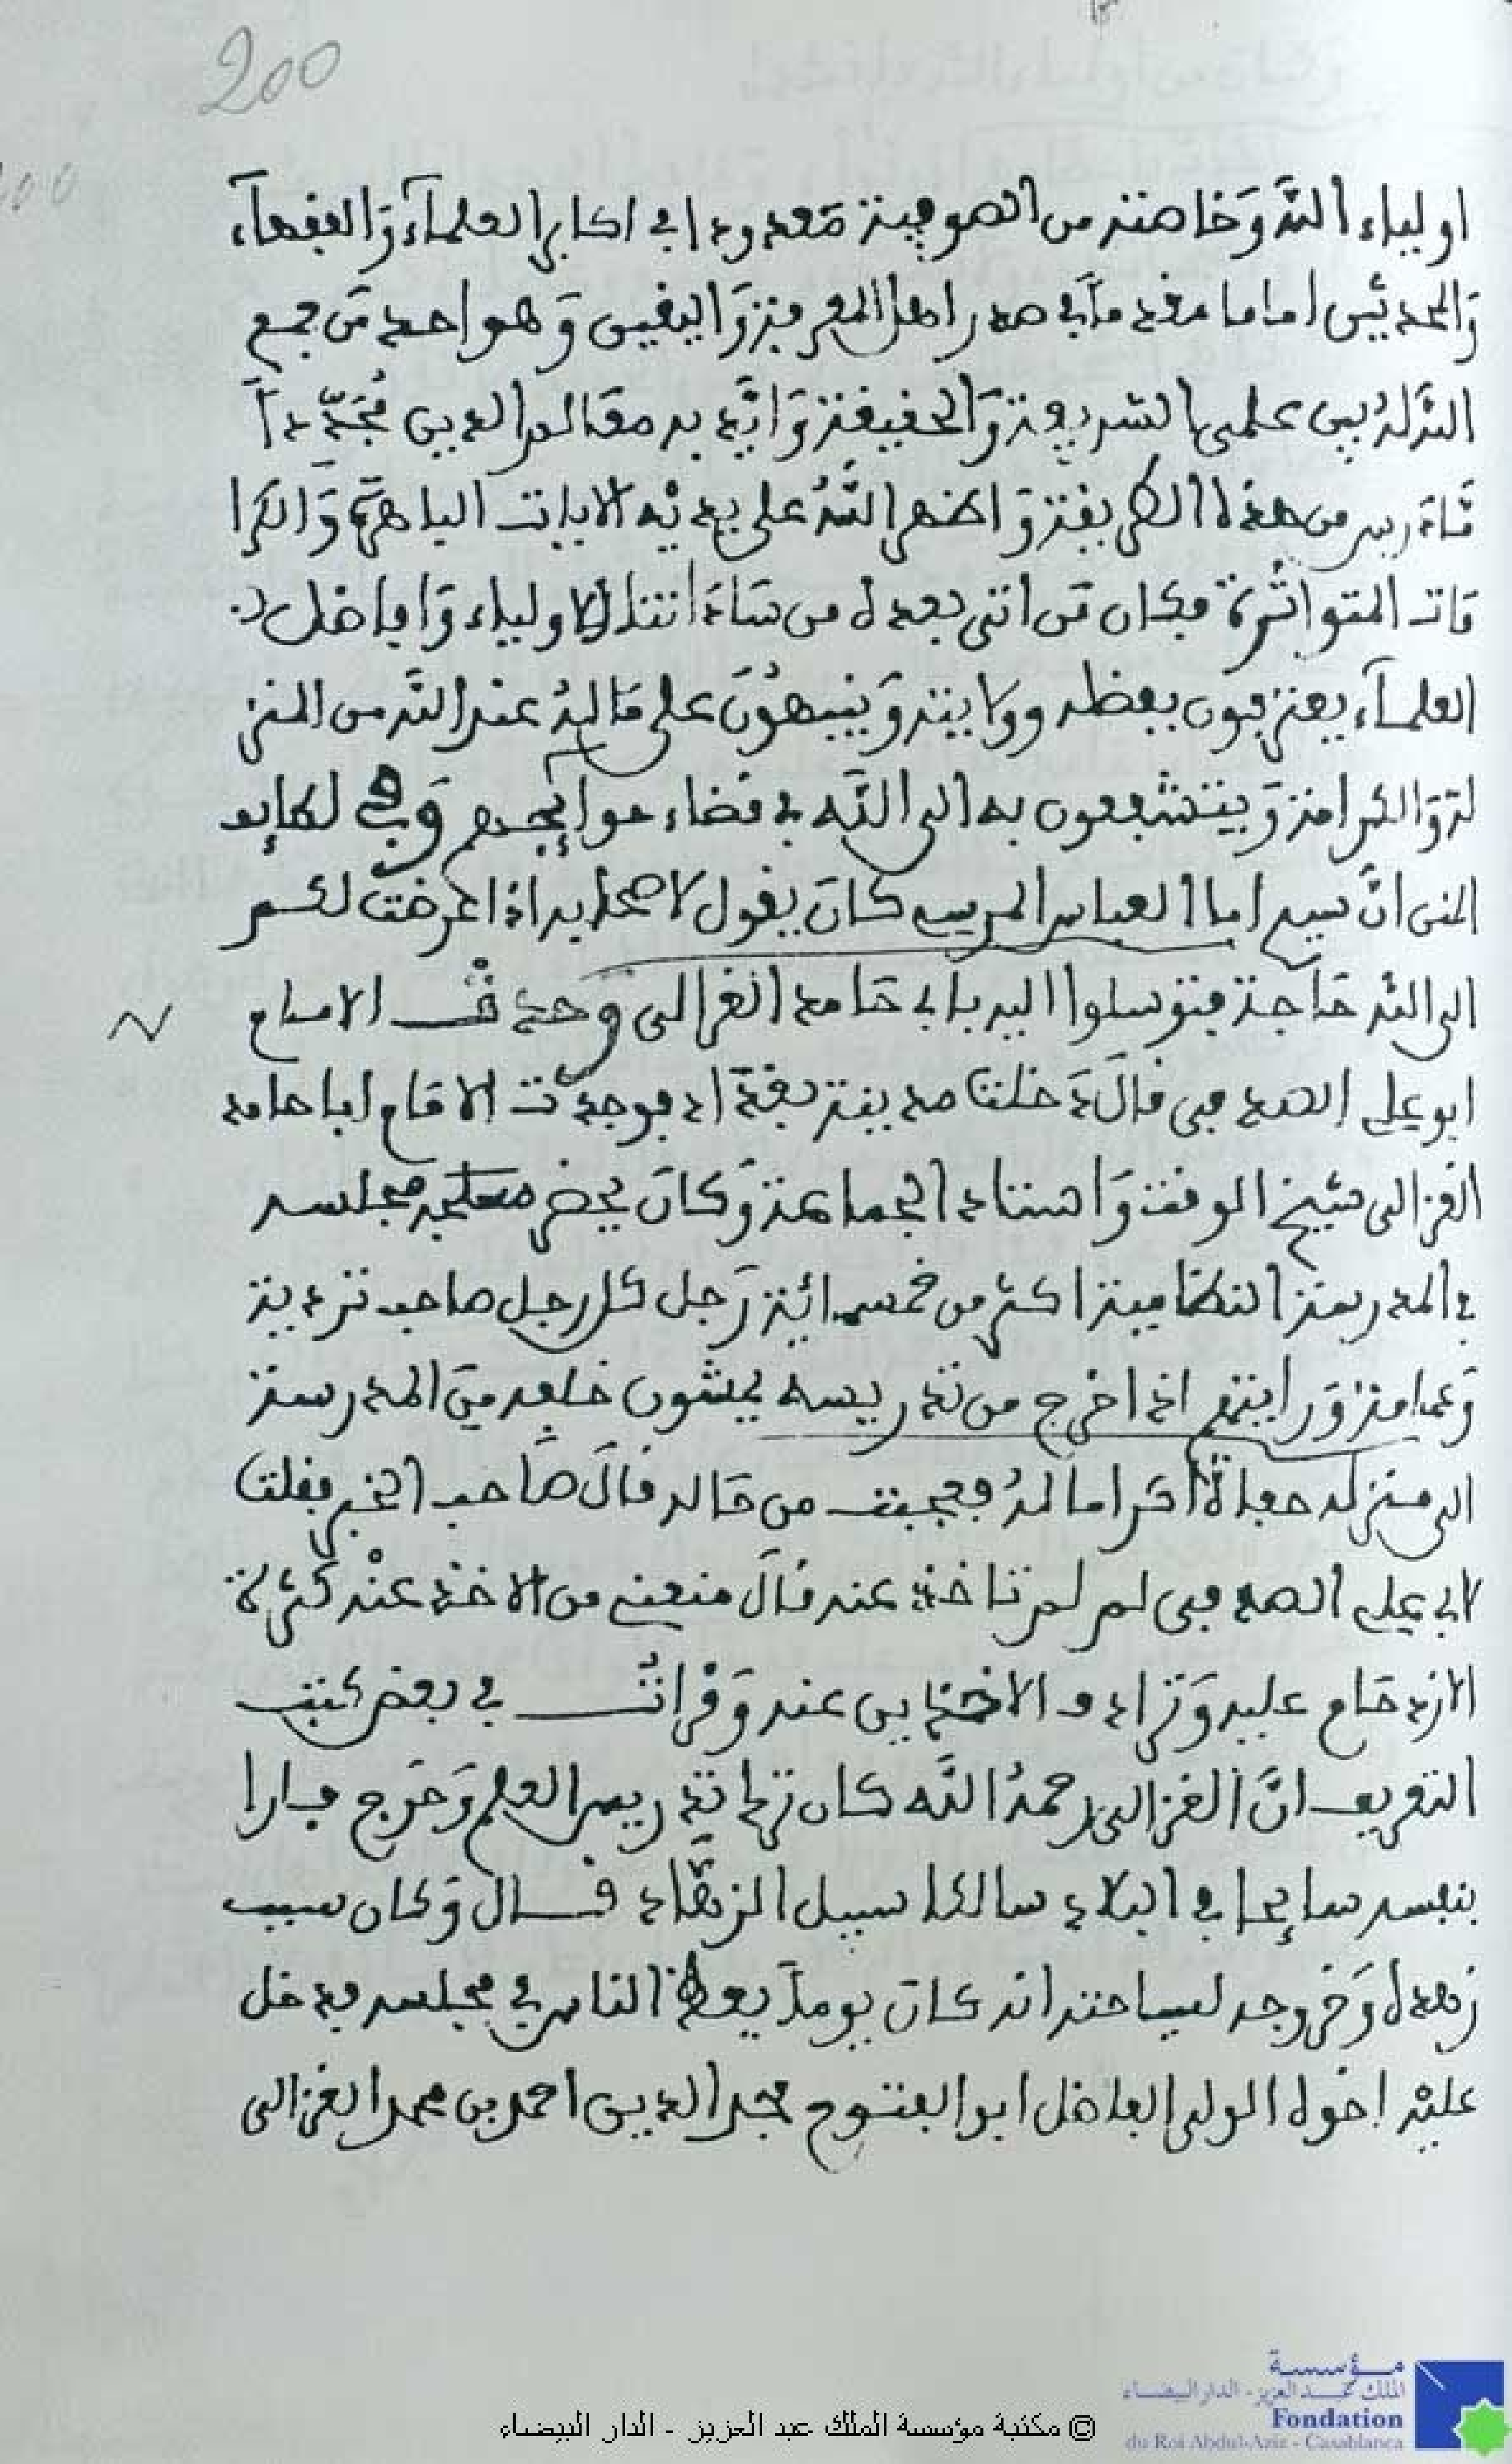 200
اولياء الله وَخاصته من الصوفية مَعدودا في اكابر العلمآء وَالفقهآء
وَالمحدثين اماما مقدمآ في صدر اهل المعرفة وَاليقين وَهو احد مَن جمع
الله لهُ بين علمى الشريعة وَالحقيقة وَايَّد به معالم الدين مُجَدِّدآ
مَادرس من هذه الطريقة وَاظهر اللهُ على يديْه الايات الباهرَة وَالكرا
مَات المتواتْرة فكان مَن اتى بعده من سَادَاتنا الاولياء وَافاضل
العلمآء يعترفون بفضله وولايته وَينبهُونَ على مَا لهُ عند الله من المنز
لة وَالكرامة وَيتشفعون به الى الله في قضاء حوايجهم وَفي لطايف
المنن انَّ سيدي ابا العباس المرسي كانَ يقول لاصحابه اذا عرضت لكم
الى الله حَاجة فتوسلوا اليه بابي حَامد الغزالى وَحدثْ الامام
ابو علي الصدفي قالَ دَخلت مدينة بغدَاد فوجدْت الامَام ابا حامد
الغزالى شيخ الوقت وَاستاذ الجماعة وَكانَ يحضر مجلسه
في المدرسة النظامية اكثر من خمسمائة رَجل كل رجل صاحب تربية
وَعمامة وَرايتهم اذا خرج من تدريسه يمشون خلفه من المدرسة
الى منزله حفاةً اكراما لهُ فعجبت من حَاله قالَ صَاحب الخبر فقلت
لابي علي الصدفي لم لم تاخذ عنه قالَ منعني من الاخذ عنْه كثرة
الازدحَام عليه وَتزاحم الاخذين عنه وَقرْاتُ في بعض كتب
التعريف انَّ الغزالى رحمهُ الله كان ترك تدريس العلم وَخرَج فارا
بنفسه سايحا في البلاد سالكا سبيل الزهَّاد قال وَكان سبب
زهده وَخروجه لسياحته انه كان يومآ يعظ الناس في مجلسه فدخل
عليْه اخوه الولى الفاضل ابو الفتوح مجد الدين احمد بن محمد الغزالى
مؤسسة
الملك عبد العزيز - الدار البيضاء
Fondation
du Roi Abdul-Aziz - Casablanca
© مكتبة مؤسسة الملك عبد العزيز - الدار البيضاء